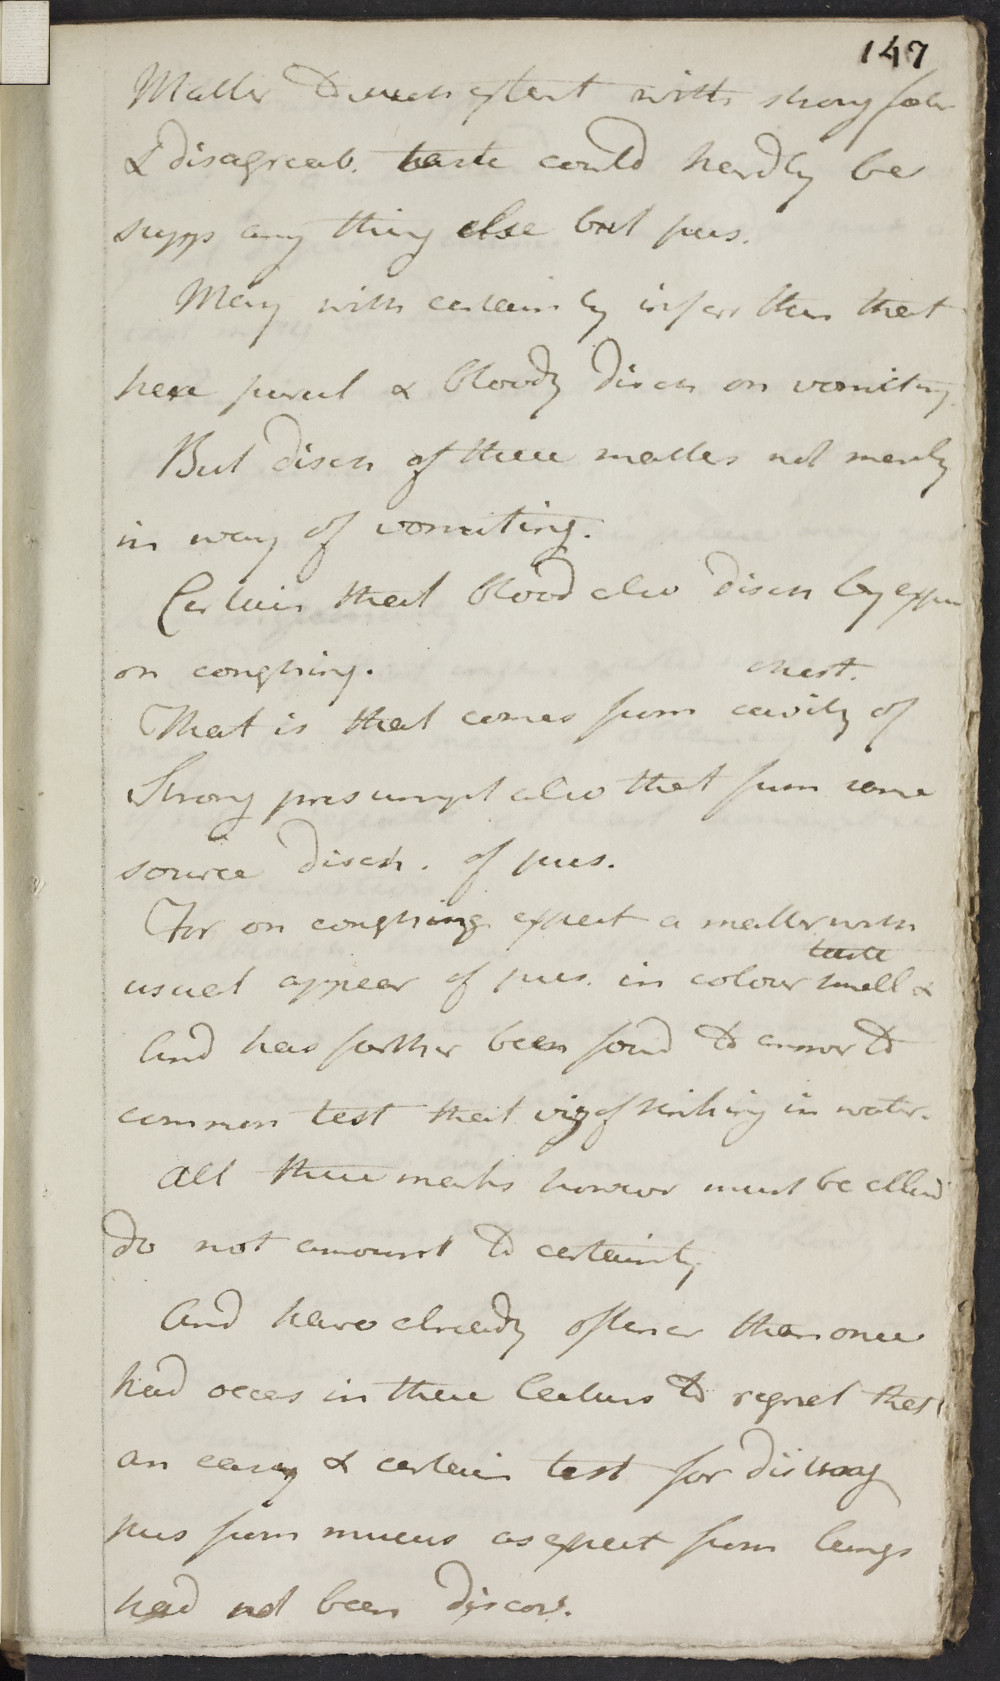 147
Matter to such extent with strong foetor
& disagreeab. taste could hardly be
supps any thing else but pus.
May with certainty infer then that
here purul & bloody disch on vomiting.
But disch of these matters not merely
in way of vomiting.
Certain that blood also disch by expec
on coughing.
chest.
That is that comes from cavity of
Strong presumpt also that from same
source disch. of pus.
For on coughing expect a matter with
taste
usual appear of pus. in colour smell &
And has farther been found to answer to
common test that viz of sinking in water.
All these marks however must be allowd
do not amount to certainty
And have already oftener than once
had occas in these Lectures to regret that
an easy & certain test for disting
pus from mucus as expect from lungs
had not been discov.